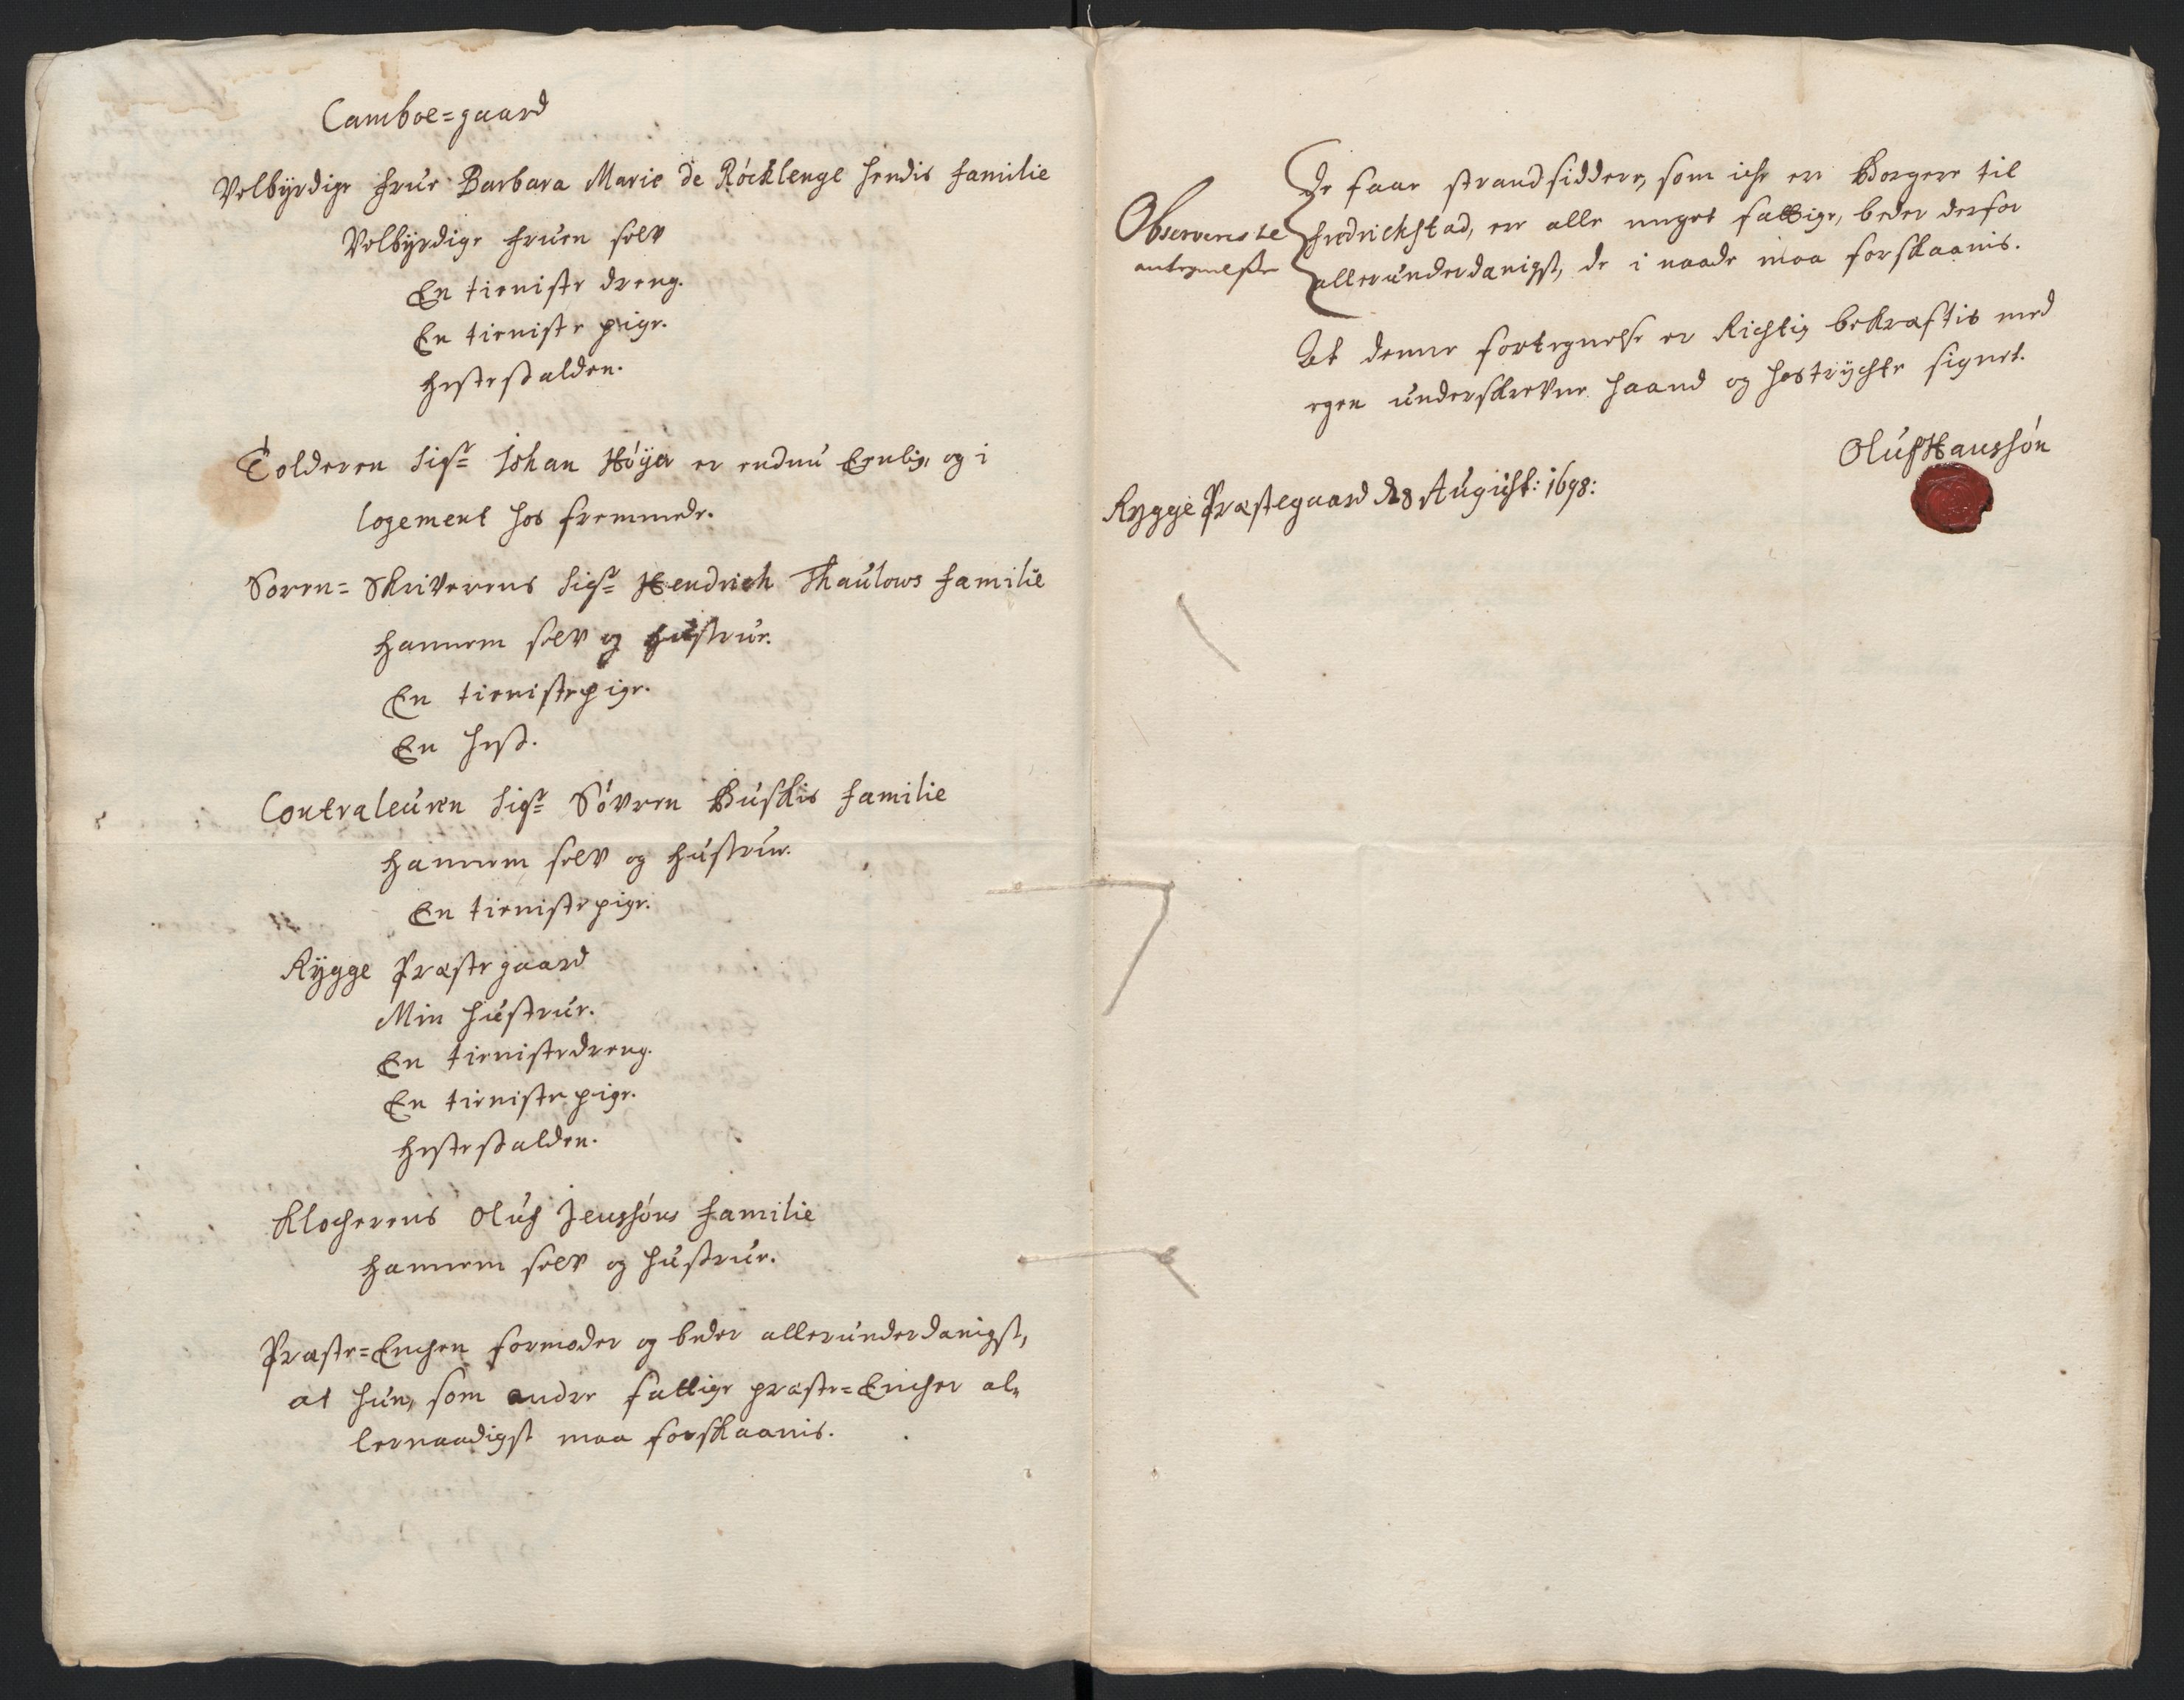 Camboe=gaard
Velbÿrdige Frue Barbara Marie de Röcklenge hendis familie
Velbÿrdige Fruen selv
En tieniste dreng.
En tieniste pige.
Hestestalden.
Tolderen Sigr Johan Höÿer er endnu Eenlig, og i
logement hos fremmede.
Soren=Skriverens Sigr Hendrich Thaulows familie
Hannem selv og Hustrue.
En tienistepige.
En Hest.
Contraleuren Sigr Sövren Buskis familie
Hannem selv og Hustrue.
En tienistepige.
Rÿgge Præstegaard
Min Hustrue.
En tienistedreng.
En tienistepige.
Hestestalden.
Klocherens Oluf Jenssöns familie
Hannem selv og Hustrue.
Præste=Enchen formoder og beder allerunderdanigst,
at hun, som andre fattige præste=Encher al=
lernaadigst maa forskaanis.
De faae strandsiddere, som iche ere Borgere til
Observeriste Fredrichstad, ere alle meget fattige, beder derfor
antegnelse allerunderdanigst, de i naade maa forskaanis.
At denne fortegnelse er Richtig bekræftis med
egen underskrevne haand og hostrÿchte signet.
Oluf Hanssön
Rygge Præstegaard d 8 August: 1698: